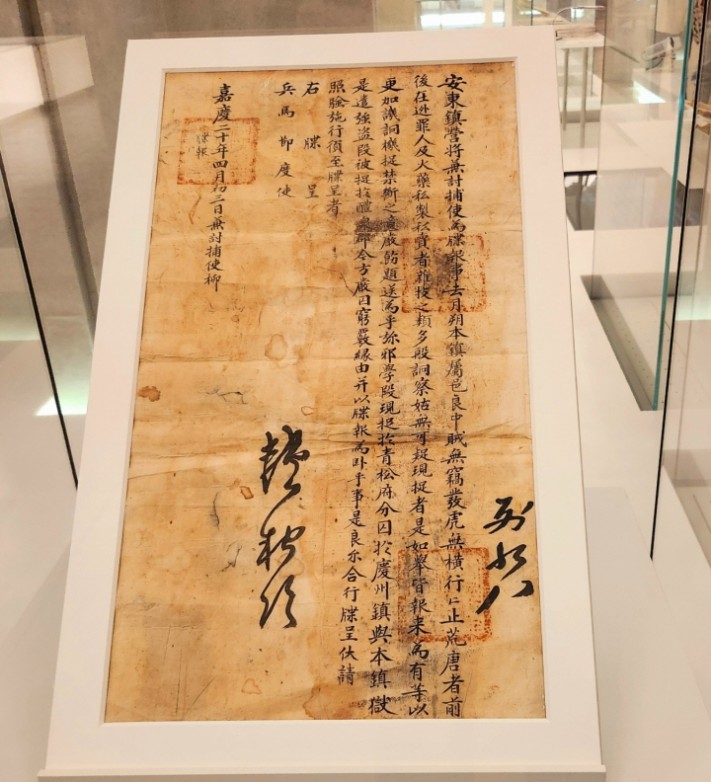 安東鎭營將兼討捕使為牒報事去月朔本鎭屬邑良中賊無竊發虎無橫行〻止荒唐者前
後在逃罪人及火藥私製私賣者雜技之類多般詗察姑無可捉現捉者是如擧皆報来為有等以
更加譏詗機捉禁斷之意嚴飭題送為乎旀邪學段現捉於青松府分囚於慶州鎭與本鎭獄
是遣強盜段被捉於醴泉郡今方嚴囚窮覈緣由并以牒報為卧乎事是良尒合行牒呈伏請
照驗施行須至牒呈者
右牒呈
兵馬節度使
嘉慶二十年四月初二日兼討捕使柳
牒報